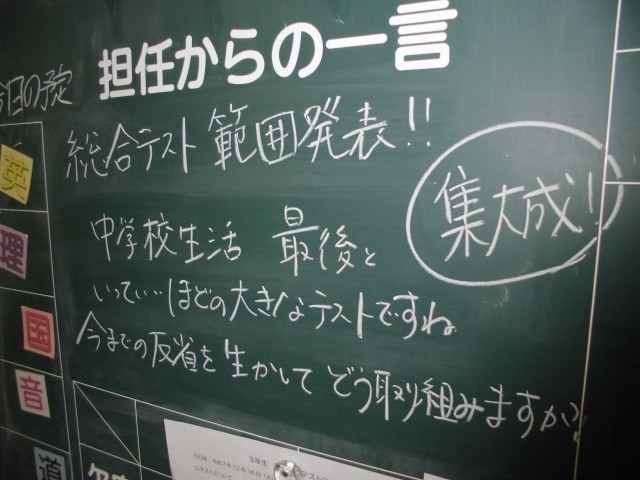 担任からの一言
今日の予定
総合テスト 範囲発表!!
集大成!
中学校生活 最後と
いっていいほどの大きなテストですね
今までの反省を生かして どう取り組みますか?
英
理
国
音
道
3年生